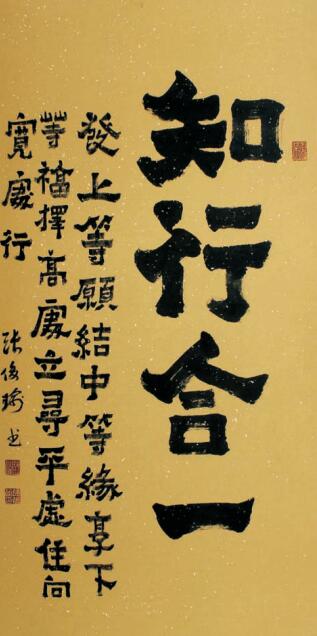 知行合一
發上等願結中等緣享下
等福擇高處立尋平處住向
寬處行
張俊瑜书